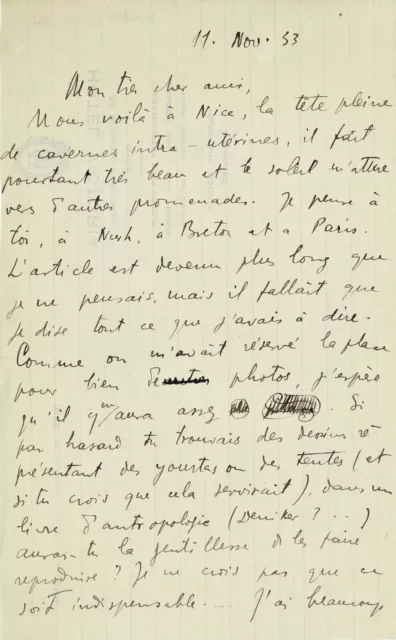 11. Nov. 33
Mon tres cher ami,
Nous voilà à Nice, la tête pleine
de cavernes intra-utérines, il fait
pourtant très beau et le soleil m'attire
vers d'autres promenades. Je pense à
toi, à Nush, à Breton et a Paris.
L'article est devenu plus long que
je ne pensais, mais il fallait que
je dise tout ce que j'avais à dire.
Comme on m'avait réservé la place
pour bien de photos, j'espère
qu'il y aura assez. Si
par hasard tu trouvais des dessins ré
présentant des yourtas ou des tentes (et
si tu crois que cela servirait), dans un
livre d'antropologie (Deniker ? ..)
auras-tu la gentillesse de les faire
reproduire ? Je ne crois pas que ce
soit indispensable.... J'ai beaucoup
HOTEL